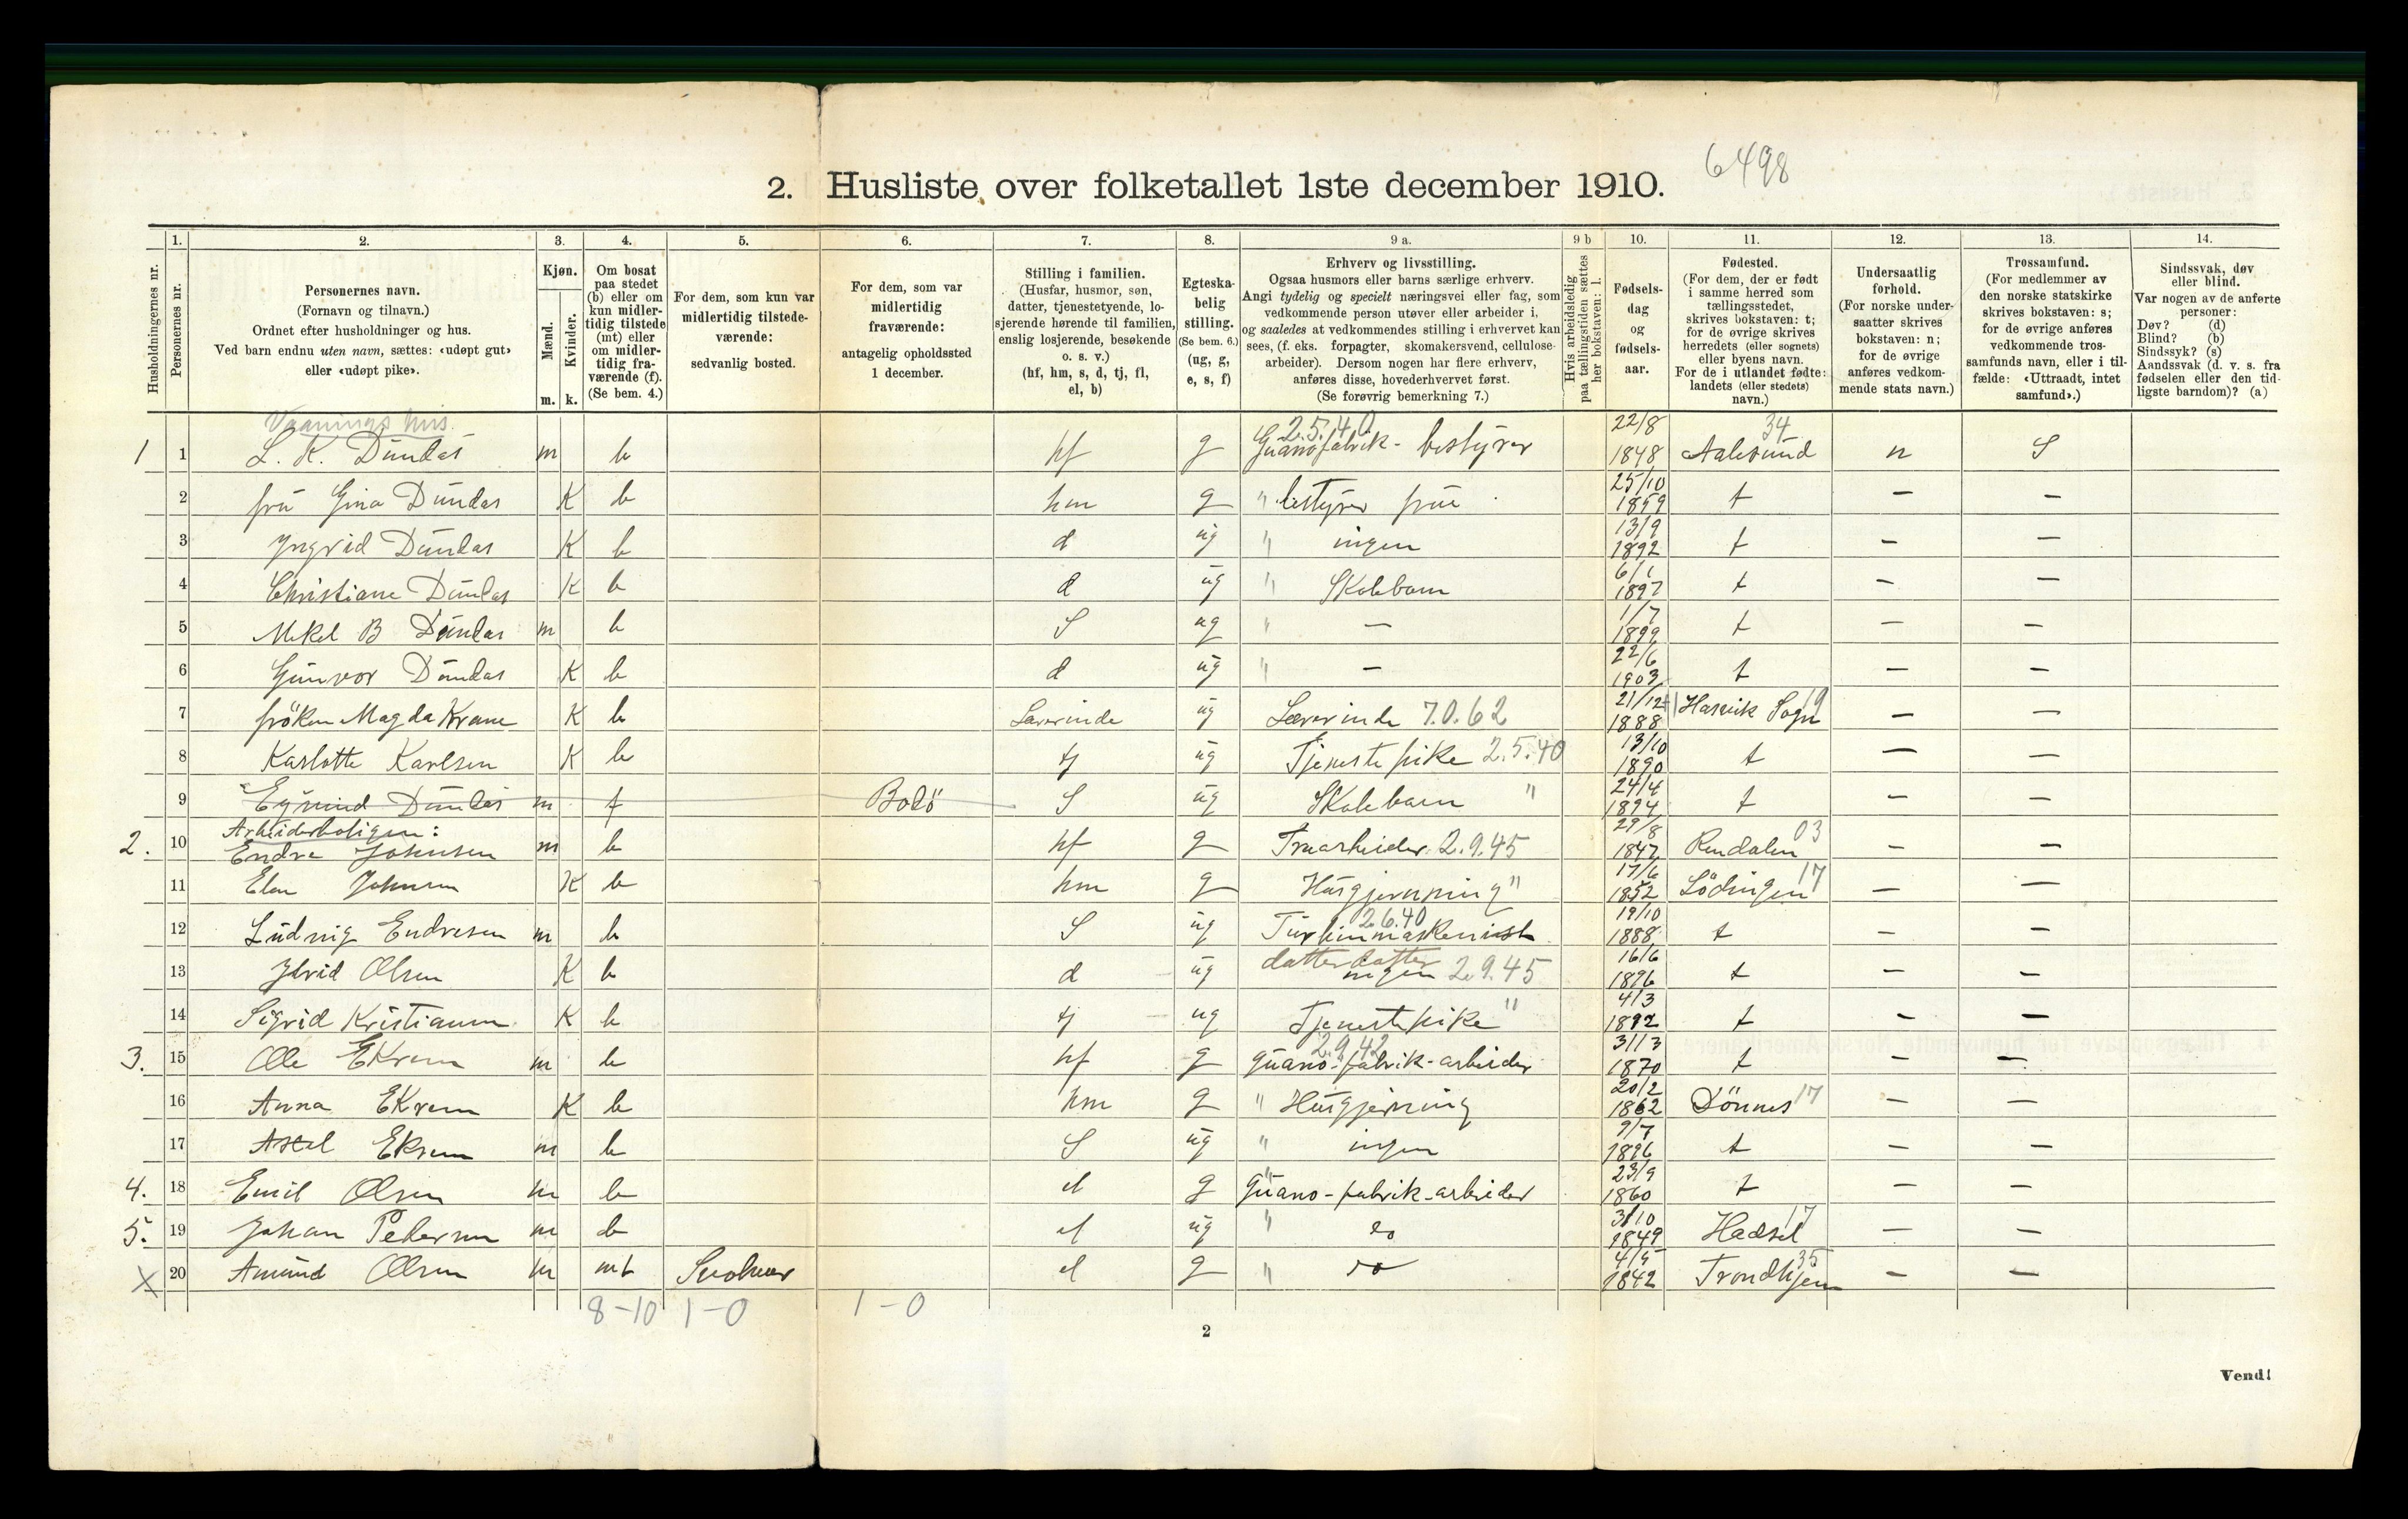 6498
2. Husliste over folketallet 1ste december 1910.
Husholdningernes nr.
1. Personernes nr.
2. Personernes navn.
(Fornavn og tilnavn.)
Ordnet efter husholdninger og hus.
Ved barn endnu uten navn, sættes: «udøpt gut»
eller «udøpt pike».
3. Kjøn.
Mænd. m.
Kvinder. k.
4. Om bosat
paa stedet
(b) eller om
kun midler-
tidig tilstede
(mt) eller
om midler-
tidig fra-
værende (f).
(Se bem. 4.)
5. For dem, som kun var
midlertidig tilstede-
værende:
sedvanlig bosted.
6. For dem, som var
midlertidig
fraværende:
antagelig opholdssted
1 december.
7. Stilling i familien.
(Husfar, husmor, søn,
datter, tjenestetyende, lo-
sjerende hørende til familien,
enslig losjerende, besøkende
o. s. v.)
(hf, hm, s, d, tj, fl,
el, b)
8. Egteska-
belig
stilling.
(Se bem. 6.)
(ug, g,
e, s, f)
9 a. Erhverv og livsstilling.
Ogsaa husmors eller barns særlige erhverv.
Angi tydelig og specielt næringsvei eller fag, som
vedkommende person utøver eller arbeider i,
og saaledes at vedkommendes stilling i erhvervet kan
sees, (f. eks. forpagter, skomakersvend, cellulose-
arbeider). Dersom nogen har flere erhverv,
anføres disse, hovederhvervet først.
(Se forøvrig bemerkning 7.)
9 b Hvis arbeidsledig
paa tællingstiden sættes
her bokstaven: l.
10. Fødsels-
dag
og
fødsels-
aar.
11. Fødested.
(For dem, der er født
i samme herred som
tællingsstedet,
skrives bokstaven: t;
for de øvrige skrives
herredets (eller sognets)
eller byens navn.
For de i utlandet fødte:
landets (eller stedets)
navn.)
12. Undersaatlig
forhold.
(For norske under-
saatter skrives
bokstaven: n;
for de øvrige
anføres vedkom-
mende stats navn.)
13. Trossamfund.
(For medlemmer av
den norske statskirke
skrives bokstaven: s;
for de øvrige anføres
vedkommende tros-
samfunds navn, eller i til-
fælde: «Uttraadt, intet
samfund».)
14. Sindssvak, døv
eller blind.
Var nogen av de anførte
personer:
Døv? (d)
Blind? (b)
Sindssyk? (s)
Aandssvak (d. v. s. fra
fødselen eller den tid-
ligste barndom)? (a)
Vaanings hus.
1 1 L. K. Dundas m b hf g 2.5.40 Guanofabrik-bestyrer 22/8 1848 Aalesund 34 n S
2 fru Gina Dundas K b hm g " bestyrer frue 25/10 1859 t — —
3 Yngrid Dundas K b d ug " ingen 13/9 1892 t — —
4 Christiane Dundas K b d ug " Skolebarn 6/1 1897 t — —
5 Mekel B Dundas m b S ug " — 1/7 1899 t — —
6 Gunvor Dundas K b d ug " — 22/6 1903 t — —
7 fröken Magda Krane K b Lærerinde ug Lærerinde 7.0.62 21/12 1888 Hasvik Sogn 19 — —
8 Karlotte Karlsen K b tj ug Tjenestepike 2.5.40 13/10 1890 t — —
9 Eyvind Dundas m f Bodö S ug Skolebarn " 24/4 1894 t — —
Arbeiderboligen:
2. 10 Endre Johnsen m b hf g 2.9.45 29/8 1847 Rendalen 03 — —
11 Elen Johnsen K b hm g Husgjerning " 17/6 1852 Lödingen 17 — —
12 Ludvig Endresen m b S ug 2.6.40 Turbinmaskenist 19/10 1888 t — —
13 Olsen K b d ug datterdatter ingen 2.9.45 16/6 1896 t — —
14 Sigrid Kristiansen K b tj ug Tjenestepike " 4/3 1892 t — —
3. 15 Ole Ekrem m b hf g 2.9.42 guano-fabrik-arbeider 31/3 1870 t — —
16 Anna Ekrem K b hm g " Husgjerning 20/2 1862 Dönnes 17 — —
17 Axel Ekrem m b S ug " ingen 9/7 1896 t — —
4. 18 Emil Olsen m b el g " guano-fabrik-arbeider 23/9 1860 t — —
5. 19 Johan Pedersen m b el ug " do 3/10 1849 Hadsel 17 — —
X 20 Amund Olsen m mt Svolvær el g " do 4/5 1842 Trondhjem 35 — —
8-10 1-0 1-0
2
Vend!